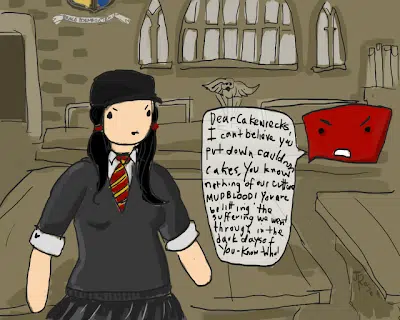 Dear Cakewrecks,
I cant believe you
put down cauldron
cakes. You know
nothing of our culture
MUDBLOOD! You are
belitting the
suffering we went
through in the
dark days of
You-Know-Who!